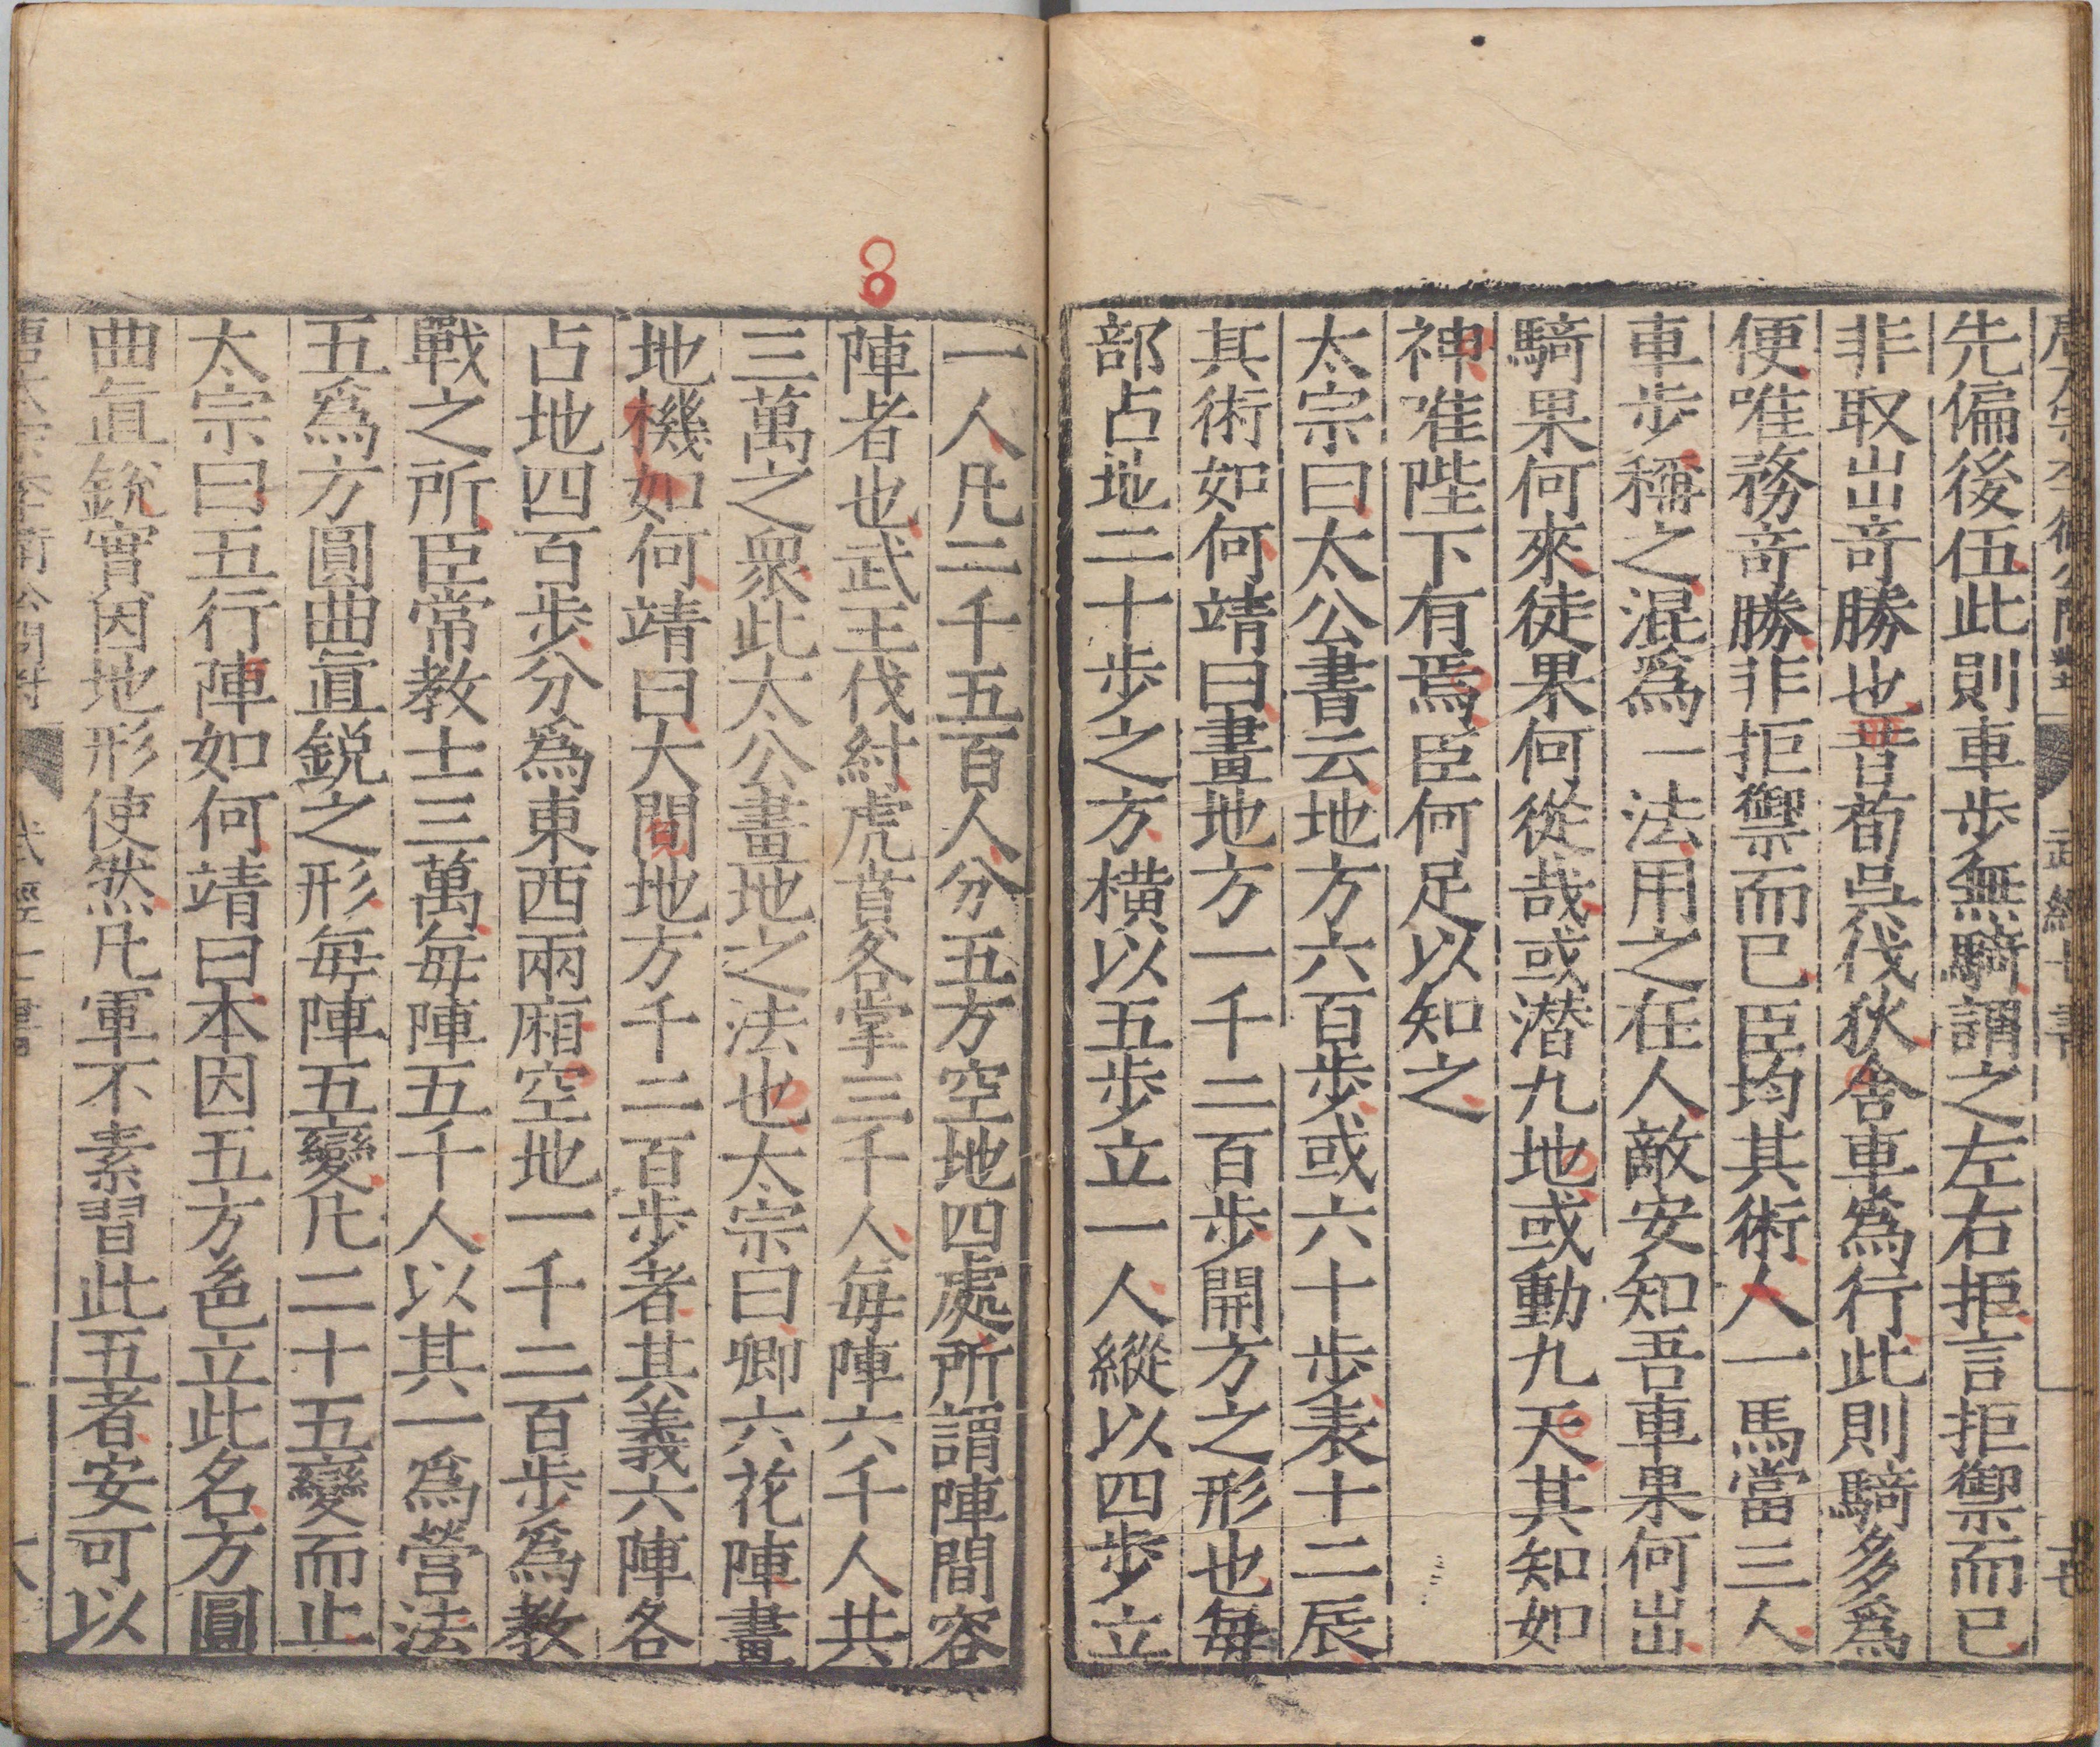 先偏後伍此則車步無騎謂之左右拒言拒禦而已
非取出奇勝也晉荀吳伐狄舍車爲行此則騎多爲
便唯務奇勝非拒禦而已臣均其術人一馬當三人
車步稱之混爲一法用之在人敵安知吾車果何出
騎果何來徒果何從哉或潜九地或動九天其知如
神唯陛下有焉臣何足以知之
太宗曰太公書云地方六百步或六十步表十二辰
其術如何靖曰畫地方一千二百步開方之形也每
部占地二十步之方橫以五步立一人縱以四步立
一人凡二千五百人分五方空地四處所謂陣間容
陣者也武王伐紂虎賁各掌三千人每陣六千人共
三萬之衆此太公畫地之法也太宗曰卿六花陣畫
地機如何靖曰大閱地方千二百步者其義六陣各
占地四百步分爲東西兩廂空地一千二百步爲教
戰之所臣常教士三萬每陣五千人以其一爲營法
五爲方圓曲直銳之形每陣五變凡二十五變而止
太宗曰五行陣如何靖曰本因五方色立此名方圓
曲直銳實因地形使然凡軍不素習此五者安可以